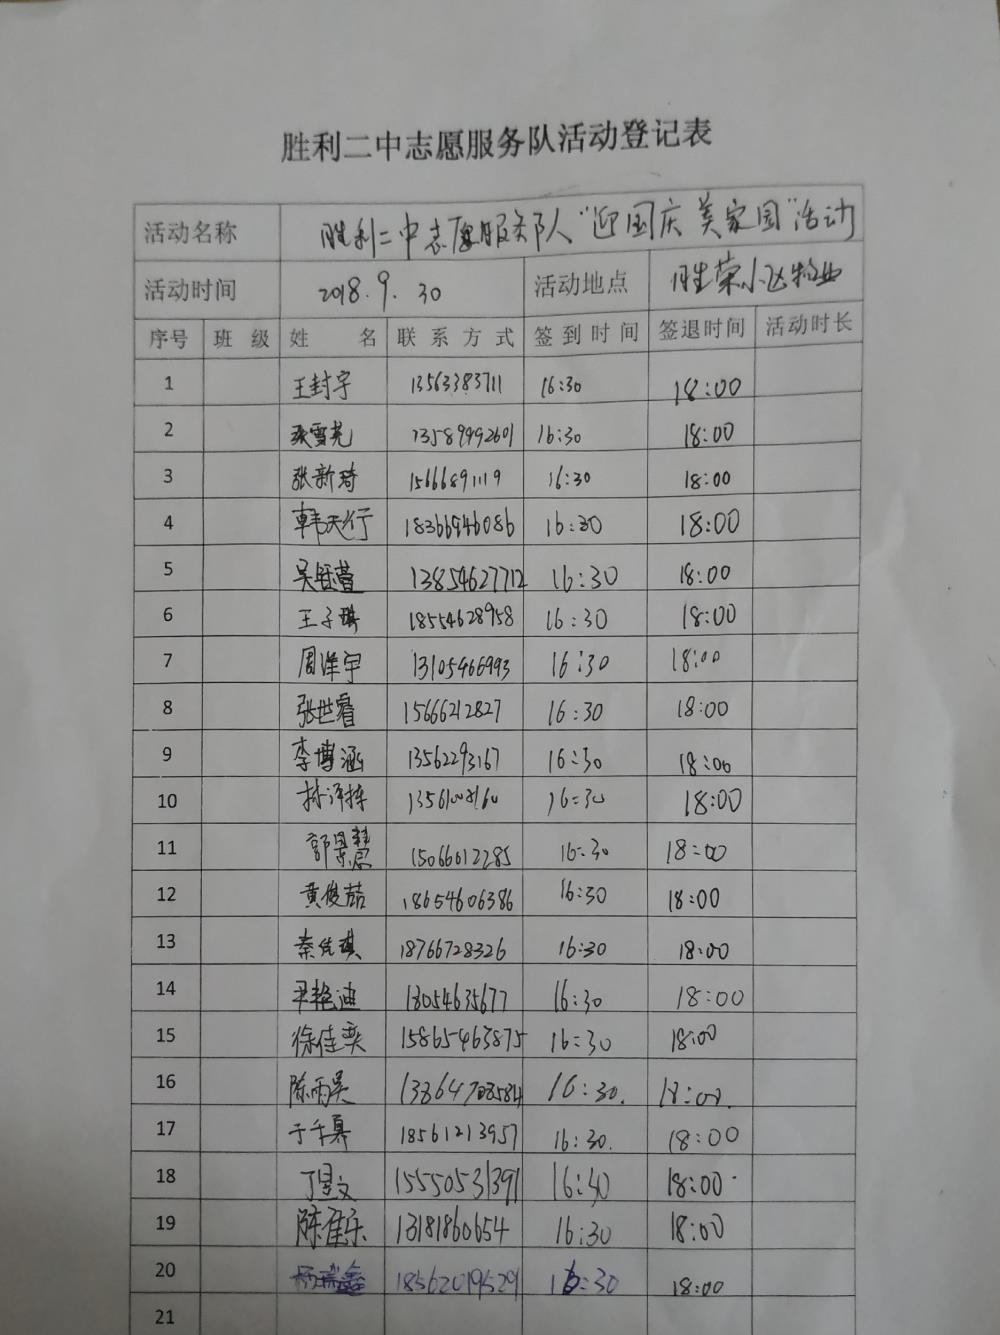 胜利二中志愿服务队活动登记表
活动名称 胜利二中志愿服务队"迎国庆 美家园"活动
活动时间 2018.9.30 活动地点 胜荣小区物业
序号 班级 姓名 联系方式 签到时间 签退时间 活动时长
1 王封宇 13563383711 16:30 18:00
2 张雪尧 13589992601 16:30 18:00
3 张新琦 15666891119 16:30 18:00
4 韩天行 18366946086 16:30 18:00
5 13854627712 16:30 18:00
6 王子琪 18554628958 16:30 18:00
7 周洋宇 13105466993 16:30 18:00
8 张世睿 15666212827 16:30 18:00
9 李博涵 13562293167 16:30 18:00
10 16:30 18:00
11 郭景慧 15066012285 16:30 18:00
12 黄俊喆 18654606386 16:30 18:00
13 18766728326 16:30 18:00
14 尹艳迪 18054635677 16:30 18:00
15 徐佳奕 15865463875 16:30 18:00
16 陈雨昊 16:30. 18:00.
17 18561213957 16:30. 18:00
18 丁昱文 15550531391 16:40 18:00
19 陈佳乐 13181860654 16:30 18:00
20 杨瑞鑫 18562019529 16:30 18:00
21